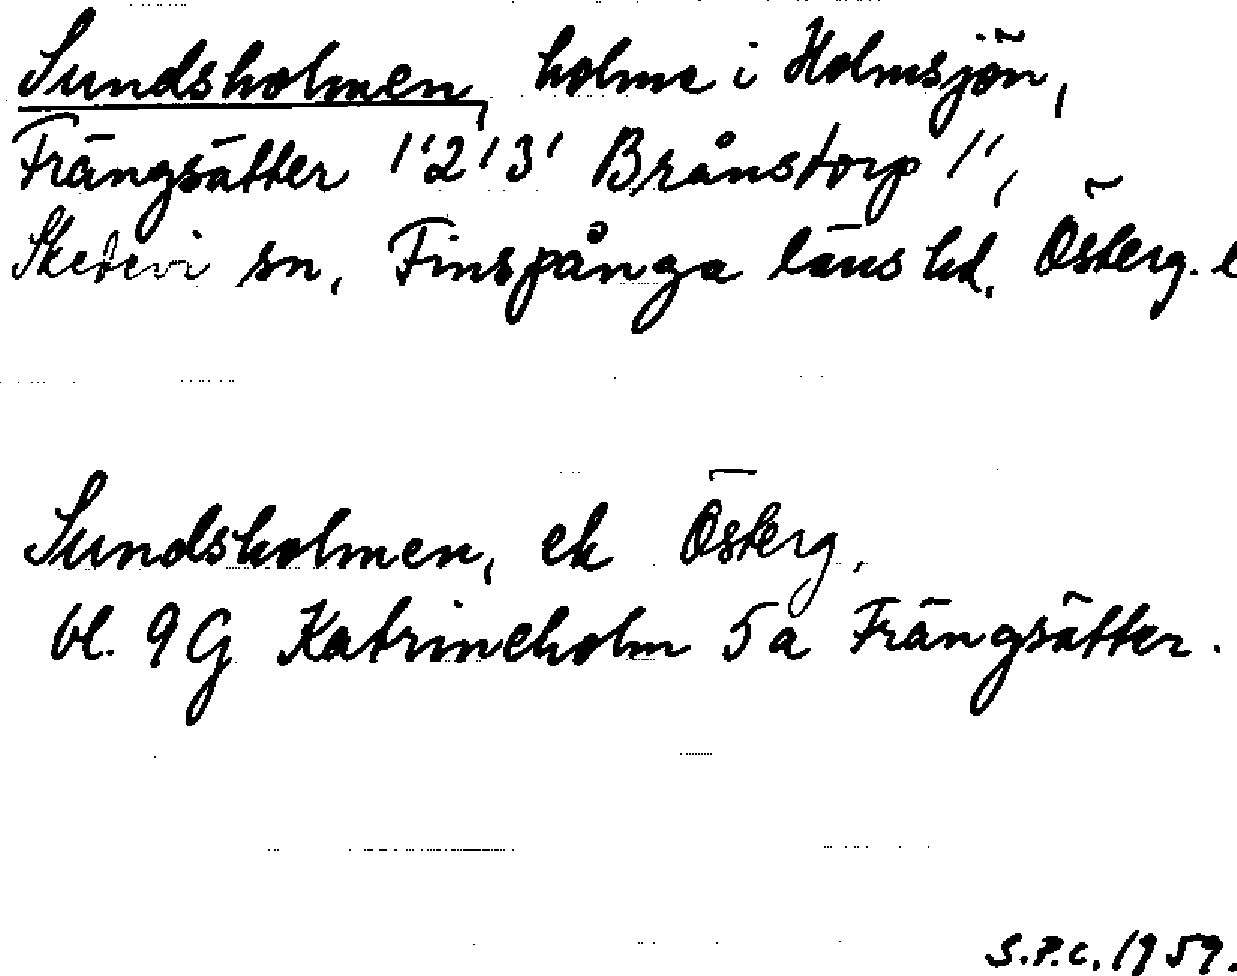 Sundsholmen, holme i Holmsjön,
Frängsätter 1'2'3' Brånstorp 1',
Skedevi sn, Finspånga läns hd. Österg. l
Sundsholmen, ek Österg.
bl. 9G Katrineholm 5a Frängsätter.
S.P.C. 1959.